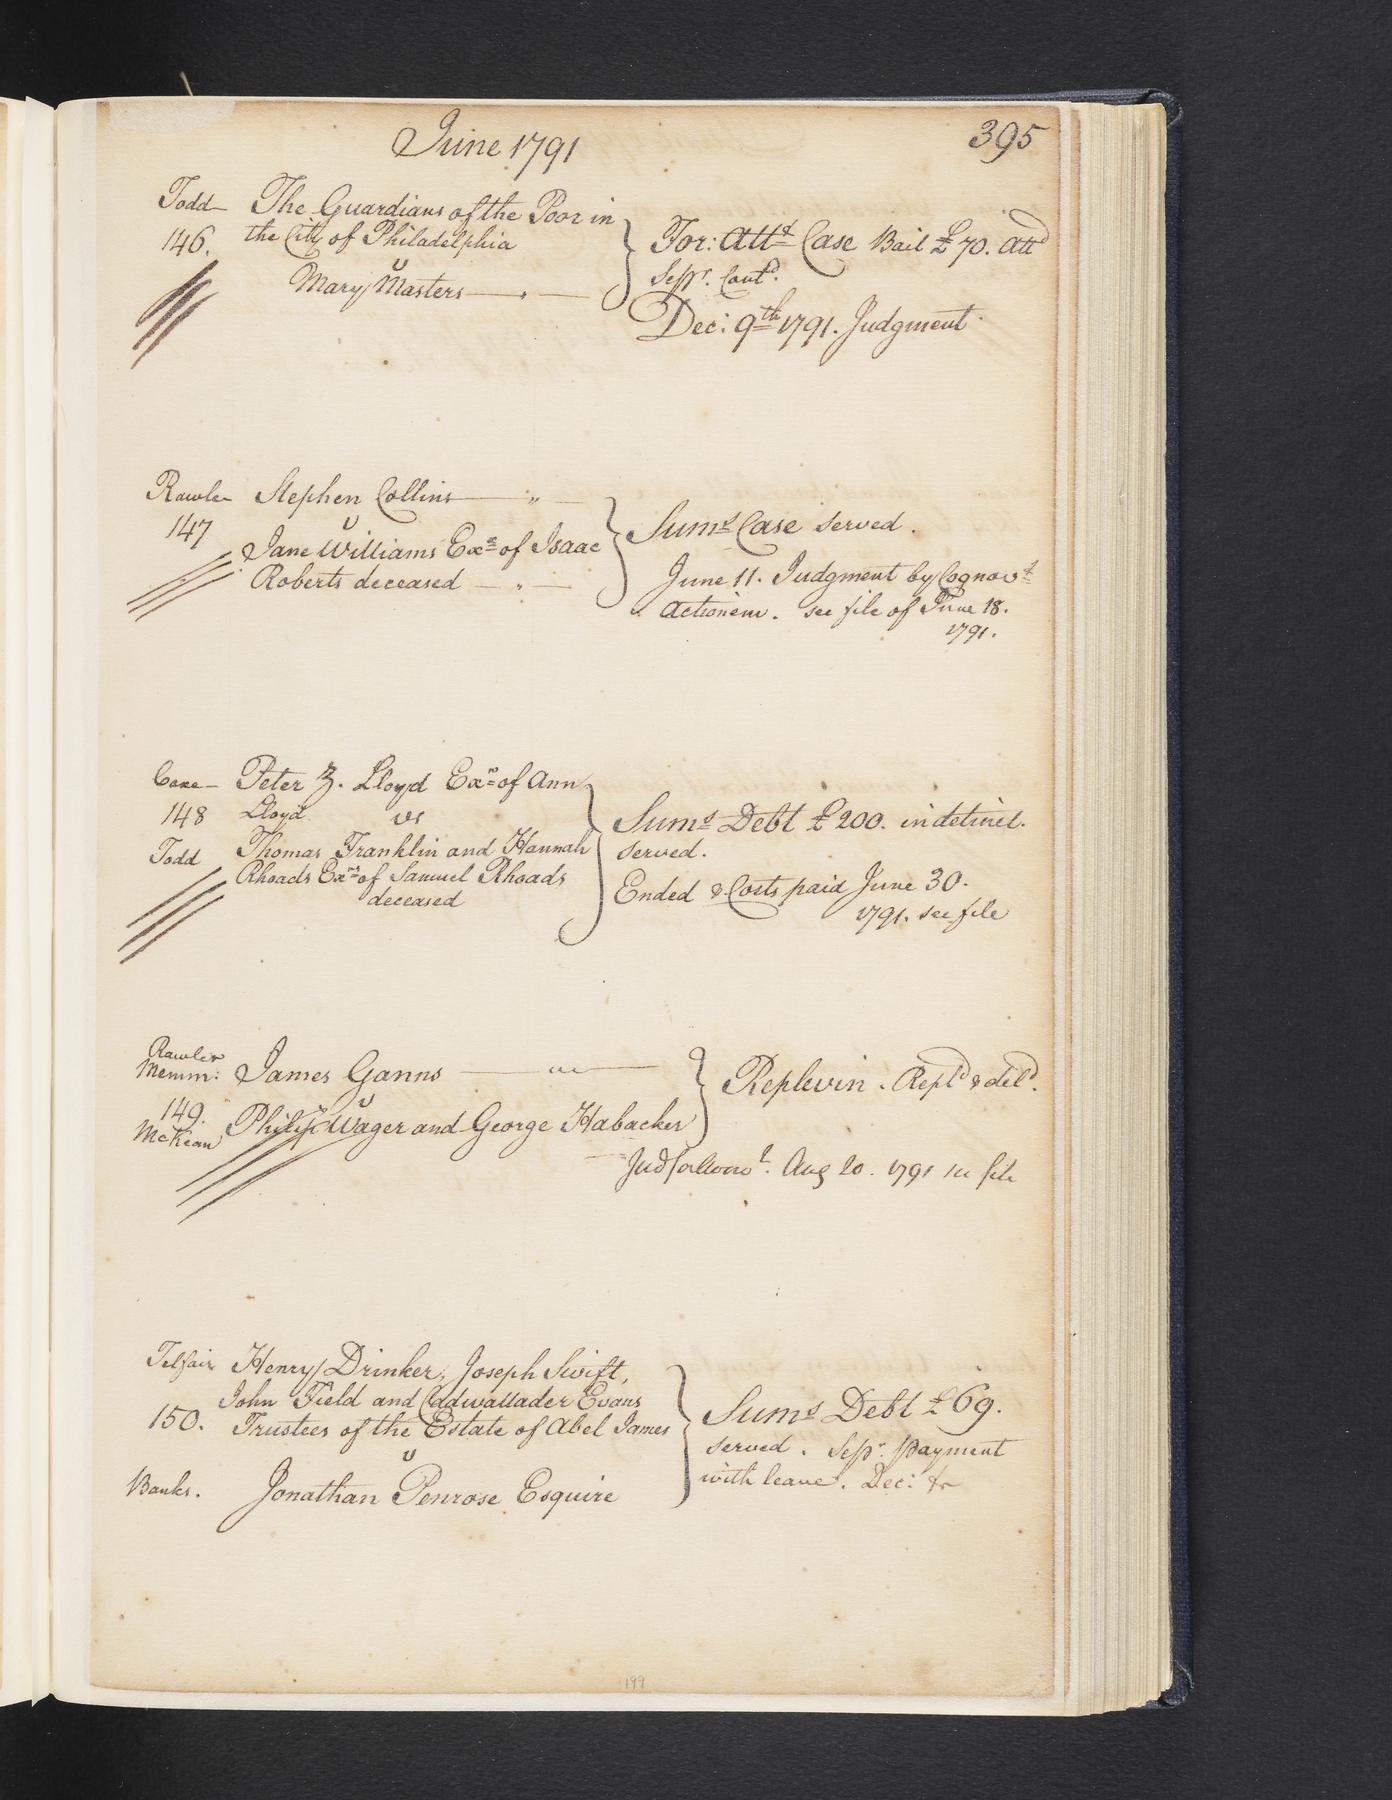 June 1791
395
Todd The Guardians of the Poor in
146. the City of Philadelphia
v
Mary Masters
For: Attt Case Bail £70. attd
Sepr. Contd.
Dec: 9th 1791. Judgment
Rawle Stephen Collins
147 v
Jane Williams Exx of Isaac
Roberts deceased
Sums Case served.
June 11. Judgment by Cognovt
Actionem. see file of June 18.
1791.
Coxe Peter Z. Lloyd Exr of Ann
148 Lloyd vs
Todd Thomas Franklin and Hannah
Rhoads Exrs of Samuel Rhoads
deceased
Sums Debt £200. in detinet.
served.
Ended & Costs paid June 30.
1791. see file
Rawle
Memm: James Ganno
149. v
McKean Philip Wager and George Habacker
Replevin. Repld & deld.
Aug 20. 1791 see file
Telfair Henry Drinker, Joseph Swift,
John Field and Cadwallader Evans
150. Trustees of the Estate of Abel James
v
Banks. Jonathan Penrose Esquire
Sums Debt £69.
served. Sepr. payment
with leave. Dec:
199